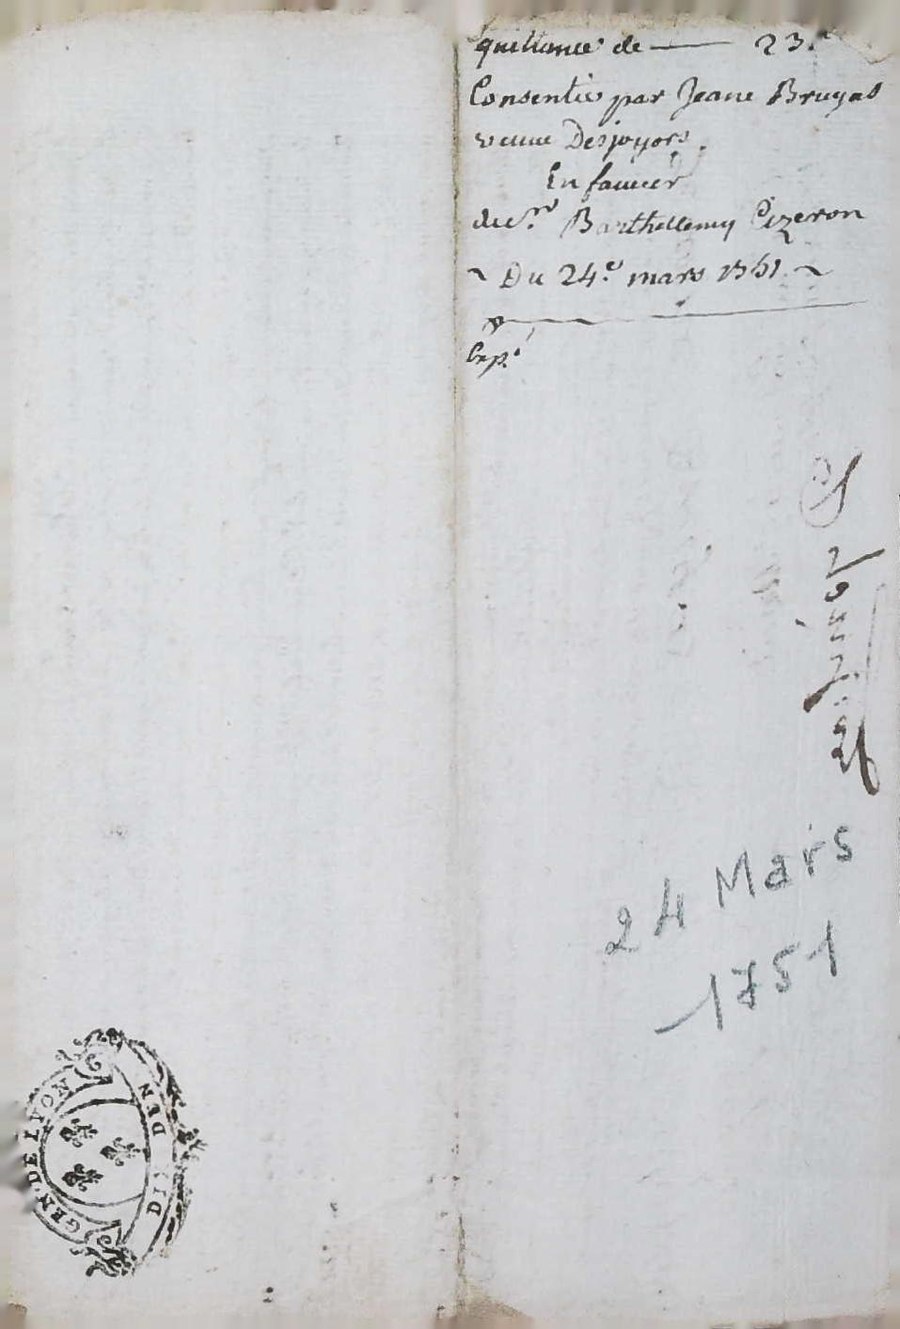 quittance de — 23.
Consentie par Jeane Bruyas
veuve Desjoyors.
En faueur
du s.r Barthellemy Pizeron
~ Du 24.e mars 1751 ~
Exp.é
24 Mars
1751
GEN. DE LYON
DEN